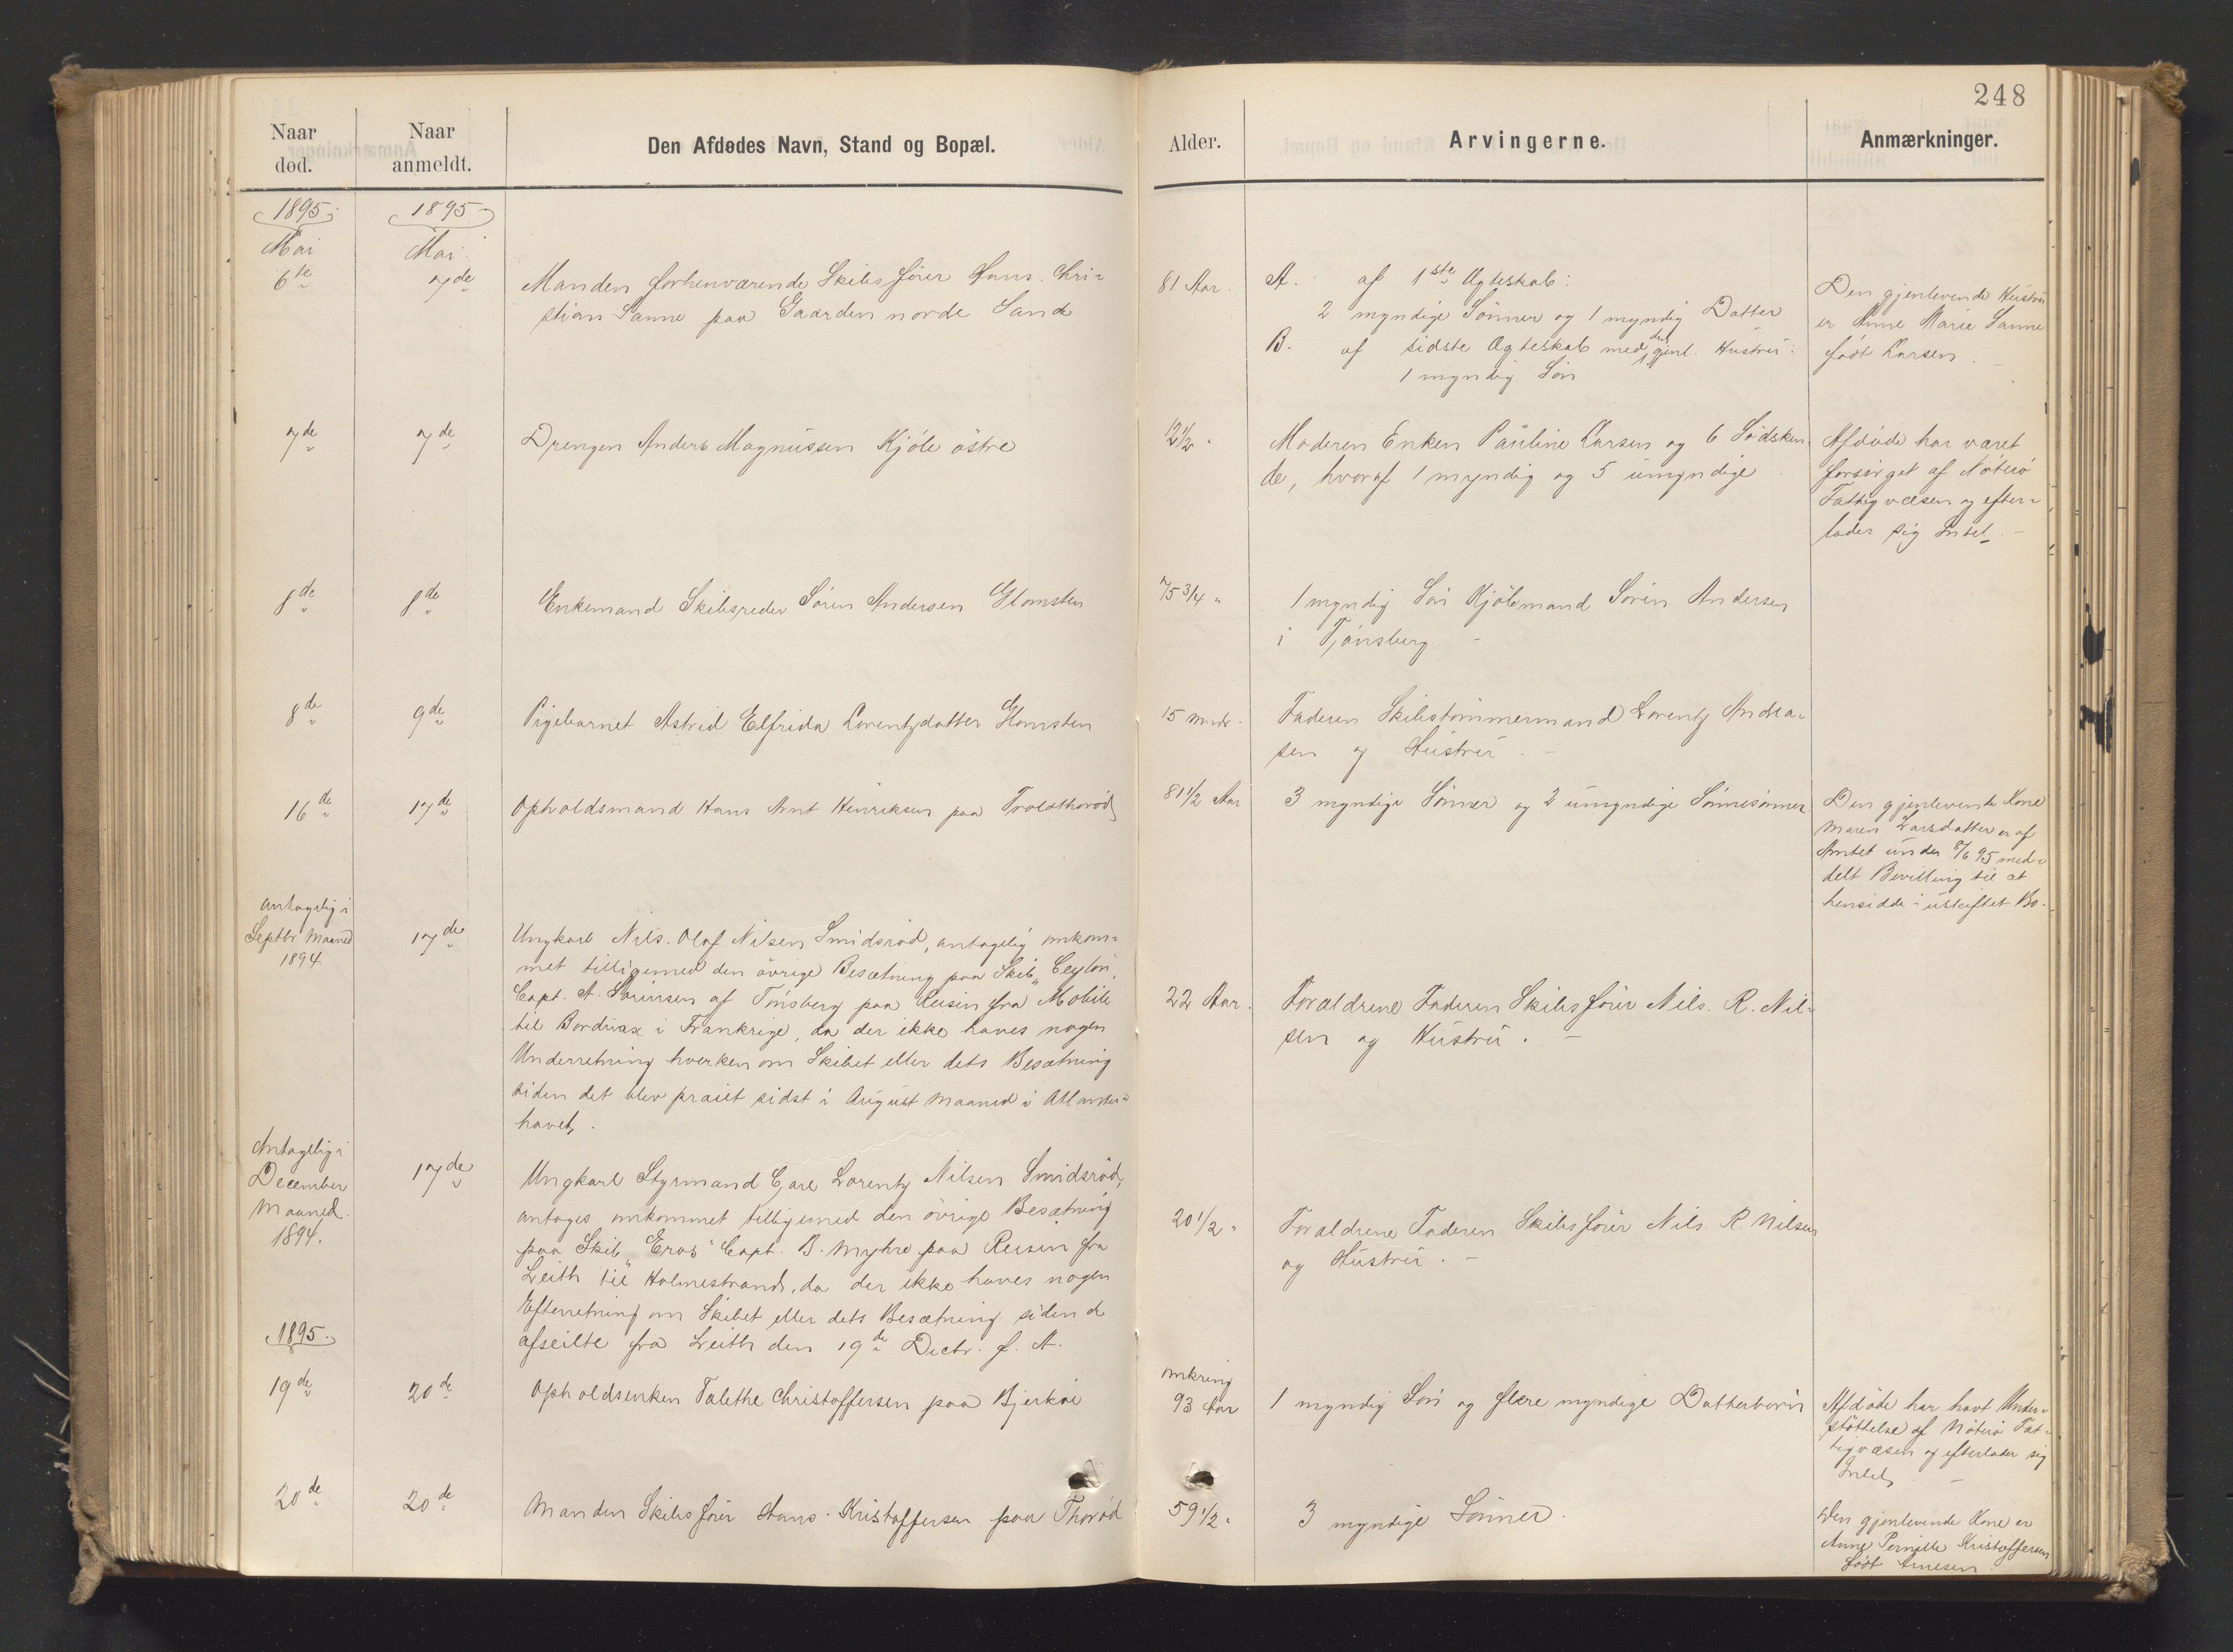 248
Naar død.
Naar anmeldt.
Den Afdødes Navn, Stand og Bopæl.
Alder.
Arvingerne.
Anmærkninger.
1895
1895
Mai
Mai
6te
7de
Manden forhenværende Skibsfører Hans Chri-
stian Sanne paa Gaarden nordre Sande
81 Aar.
A. af 1ste Ægteskab:
2 myndige Sönner og 1 myndig Datter
B. af sidste Ægteskab med den gjenl. Hustru:
1 myndig Sön
Den gjenlevende Hustru
er Anne Marie Sanne
født Larsen.
7de
7de
Drengen Anders Magnussen Kjöle östre
12 1/2 "
Moderen Enken Pauline Larsen og 6 Södsken-
de, hvoraf 1 myndig og 5 umyndige
Afdöde har været
forsörget af Nöterö
Fattigvæsen og efter-
lader sig Intet. -
8de
8de
Enkemand Skibsreder Sören Andersen Glomsten
75 3/4 "
1 myndig Sön Kjöbmand Sörin Andersen
i Tjönsberg. -
8de
9de
Pigebarnet Astrid Elfrida Lorentzdatter Glomsten
15 Mndr.
Faderen Skibstömmermand Lorentz Andrea-
sen og Hustru. -
16de
17de
Opholdsmand Hans Arnt Henriksen paa
81 1/2 Aar
3 myndige Sönner og 2 umyndige Sönnesönner
Den gjenlevende Kone
Maren Larsdatter er af
Amtet under 8/6 95 med-
delt Bevilling til at
hensidde i uskiftet Bo.
antagelig i
Septbr Maaned
1894
17de
Ungkarl Nils Olaf Nilsen Smidsröd, antagelig omkom-
met tilligemed den övrige Besætning paa Skib "Ceylon",
Capt. A. Sörinsen af Tönsberg paa Reisen fra Mobile
til Bordeaux i Frankrige, da der ikke haves nogen
Underretning hverken om Skibet eller dets Besætning
siden det blev praiet sidst i August Maaned i Atlanter-
havet.
22 Aar.
Foraldrene Faderen Skibsförer Nils R. Nil-
sen og Hustru. -
Antagelig i
December
Maaned
1894.
17de
Ungkarl Styrmand Carl Lorentz Nilsen Smidsröd,
antages omkommet tilligemed den övrige Besætning
paa Skib "Eros" Capt. B. Myhre paa Reisen fra
Leith til Holmestrand, da der ikke haves nogen
Efterretning om Skibet eller dets Besætning siden de
afseilte fra Leith den 19de Decbr. f. A.
20 1/2 "
Foraldrene Faderen Skibsförer Nils R. Nilsen
og Hustru. -
1895.
19de
20de
Opholdsenken Talethe Christoffersen paa Bjerköe
omkring
93 Aar
1 myndig Sön og flere myndige Datterbörn
Afdöde har havt Under-
stöttelse af Nöterö Fat-
tigvæsen og efterlader sig
Intet. -
20de
20de
Manden Skibsförer Hans Kristoffersen paa Thoröd
59 1/2 "
3 myndige Sönner.
Den gjenlevende Kone er
Anne Pernille Kristoffersen
födt Arnesen